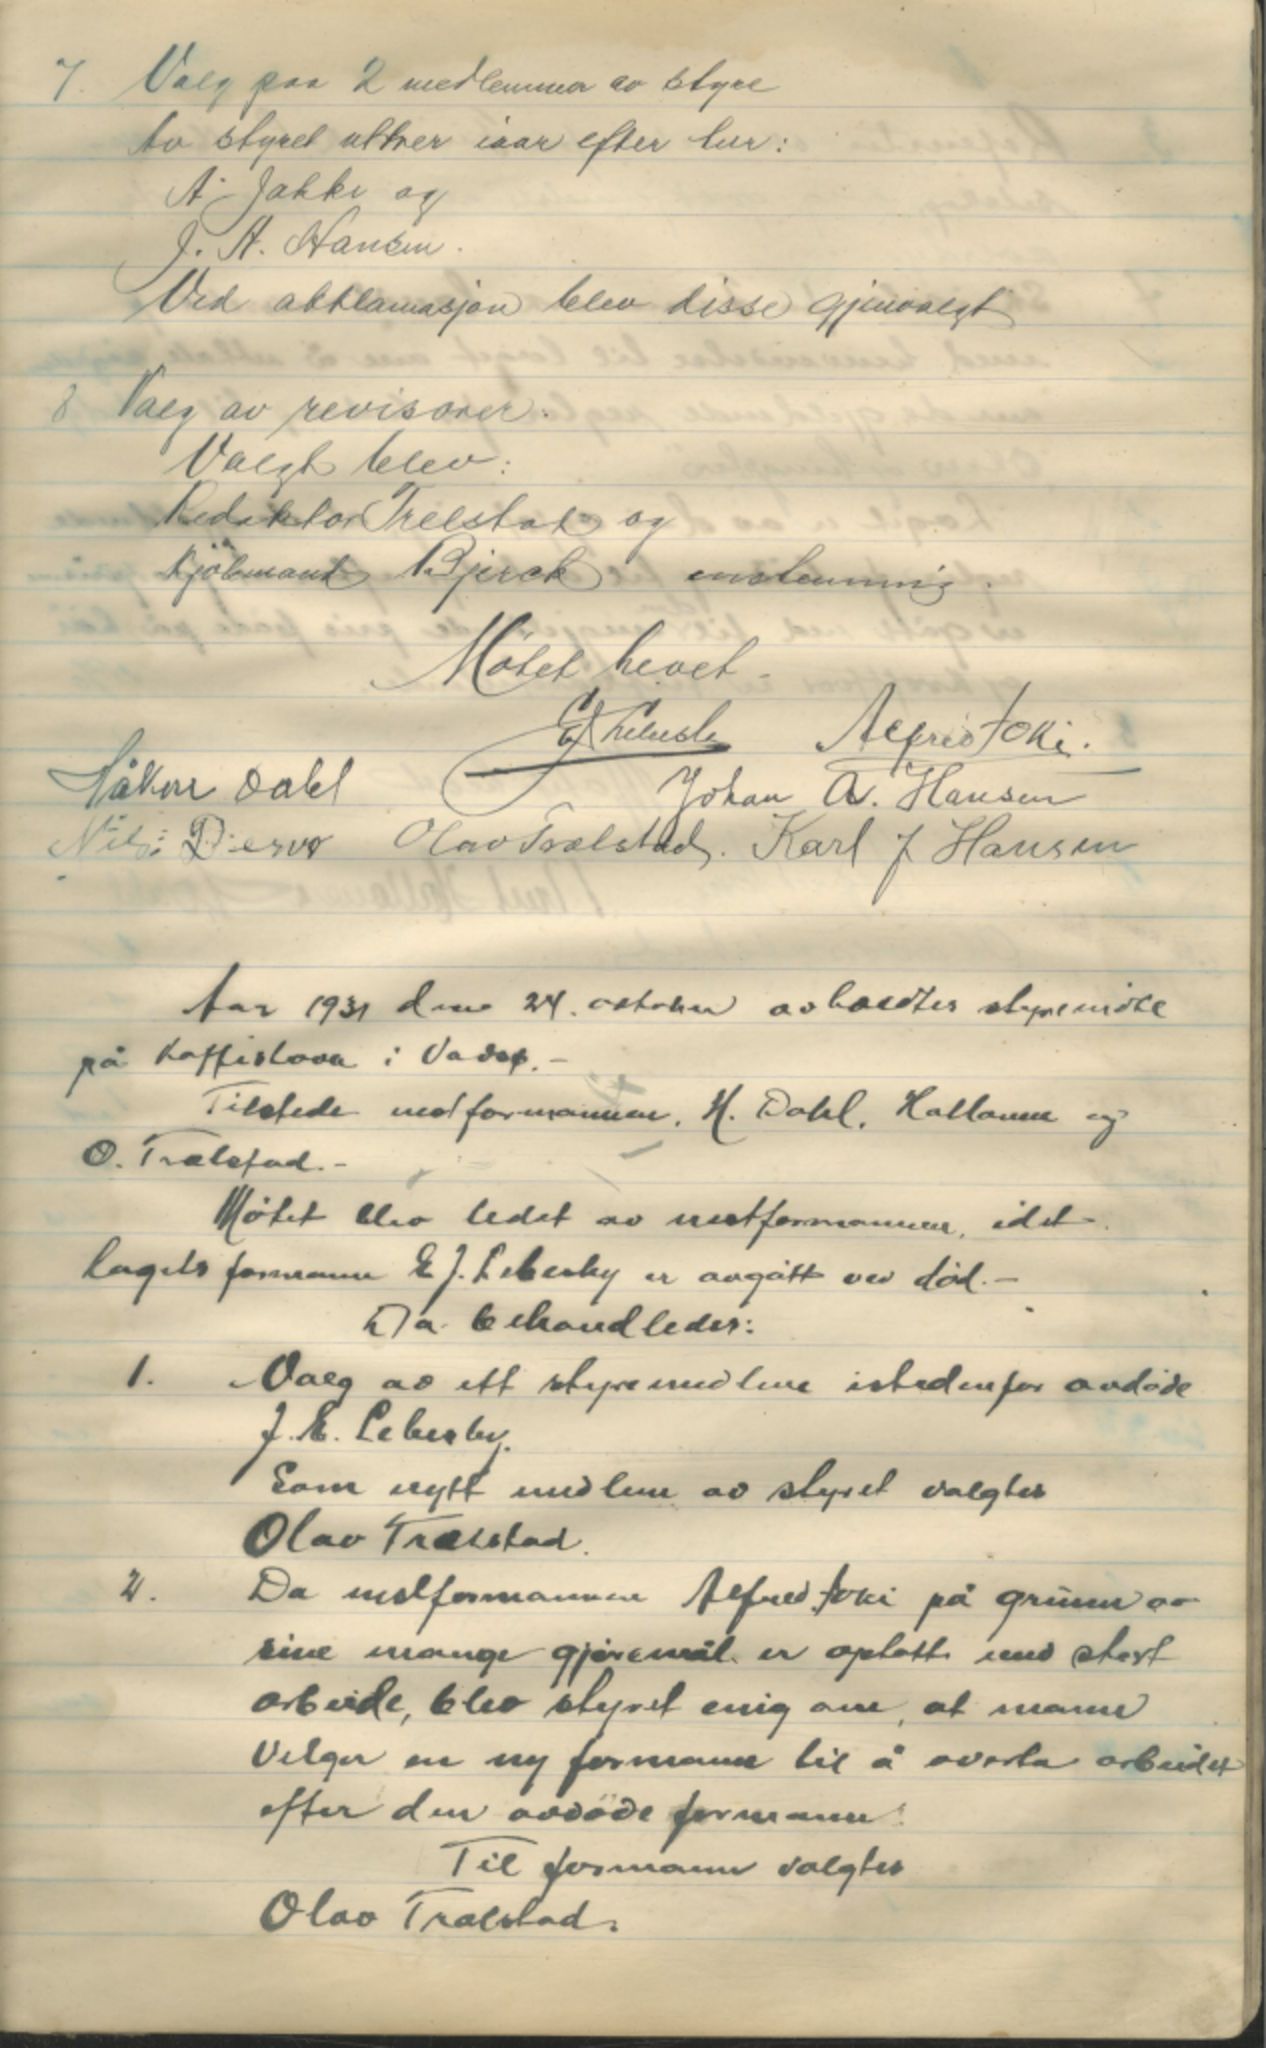 7. Valg paa 2 medlemmer av styre
Av styret uttrer iaar efter tur:
A. Jakki og
J. A. Hansen.
Ved akklamasjon blev disse gjenvalgt
8 Valg av revisorer.
Valgt blev:
Redaktør Trelstad og
Kjöbmand Bjerck enstemmig.
Møtet hevet.
Alfred Joki.
Håkon Dahl Johan A. Hansen
Nils Dervo Olav Trælstad. Karl J Hansen
Aar 1931 den 24. oktober avholdtes styremöte
på Kaffistova i Vadsø.-
Tilstede nestformannen, H. Dahl, og
O. Trælstad.-
Møtet blev ledet av nestformannen, idet
lagets formann E J. Lebesby er avgått ved død.-
Da behandledes:
1. Valg av ett styremedlem istedenfor avdöde
J. E. Lebesby.
Som nytt medlem av styret valgtes
Olav Trælstad.
2. Da nestformannen Alfred Joki på grunn av
sine mange gjöremål er optatt med stort
arbeide, blev styret enig om, at mann
velger en ny formann til å overta arbeidet
efter den avdöde formann.
Til formann valgtes
Olav Trælstad.